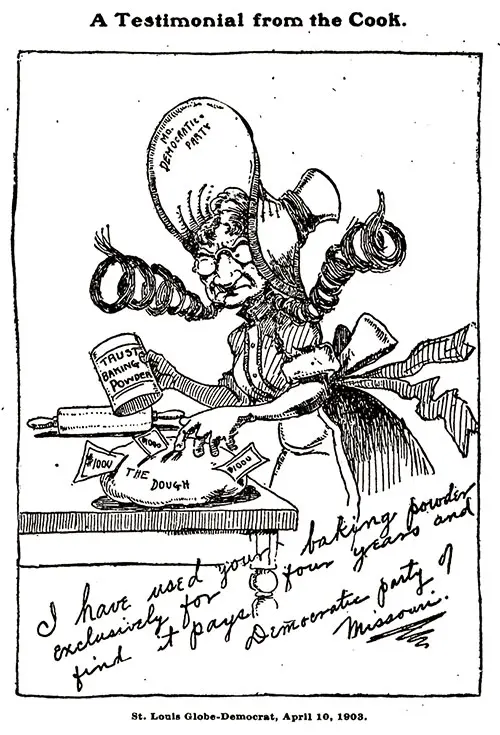 A Testimonial from the Cook.
MO.
DEMOCRATIC
PARTY
TRUST
BAKING
POWDER
$1000
$1000
THE
DOUGH
I have used your baking powder
exclusively for four years and
find it pays.
Democratic party of
Missouri.
St. Louis Globe-Democrat, April 10, 1903.